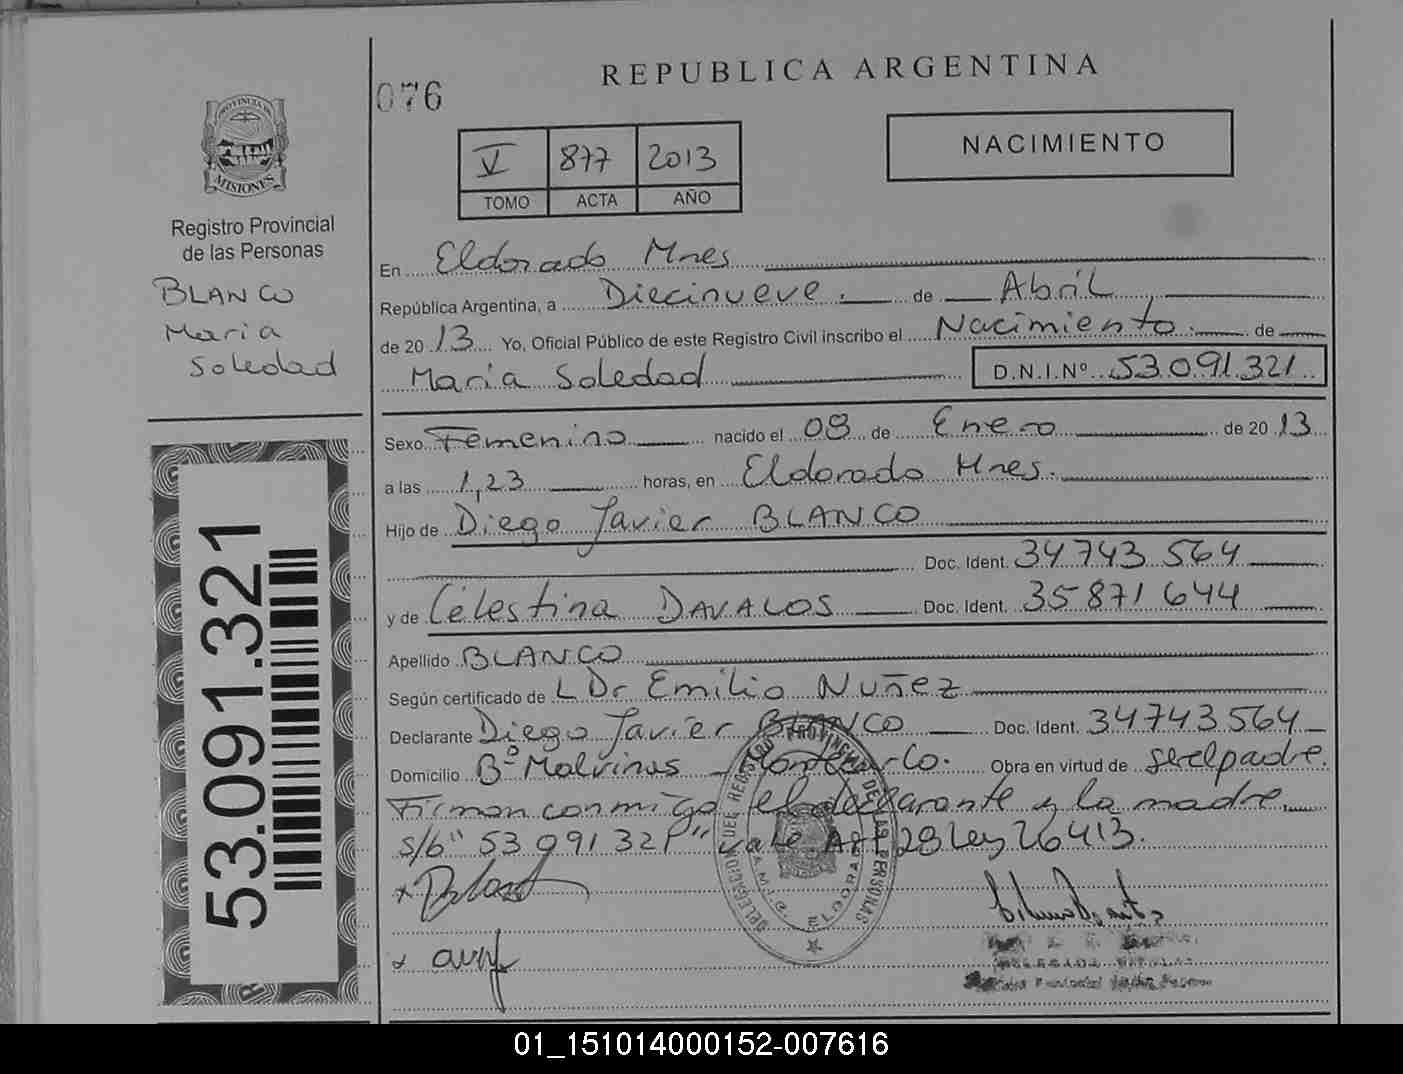 REPUBLICA ARGENTINA
076
PROVINCIA DE
MISIONES
Registro Provincial
de las Personas
BLANCO
Maria
Soledad
53.091.321
V 877 2013
TOMO ACTA AÑO
NACIMIENTO
En Eldorado Mnes
República Argentina, a Diecinueve. de Abril
de 20 13 Yo, Oficial Público de este Registro Civil inscribo el Nacimiento. de
Maria Soledad D.N.I.Nº 53.091.321
Sexo Femenino nacido el 08 de Enero de 20 13
a las 1,23 horas, en Eldorado Mnes.
Hijo de Diego Javier BLANCO
Doc. Ident. 34 743 564
y de Celestina DAVALOS Doc. Ident. 35 871 644
Apellido BLANCO
Según certificado de L Dr Emilio Nuñez
Declarante Diego Javier BLANCO Doc. Ident. 34743564
Domicilio Bº Malvinas - Montecarlo. Obra en virtud de ser el padre.
Firman conmigo el declarante y la madre
s/b" 53 091 321" vale Art 28 Ley 26413.
DELEGACION DEL REGISTRO PROVINCIAL DE LAS PERSONAS
ELDORADO
01_151014000152-007616